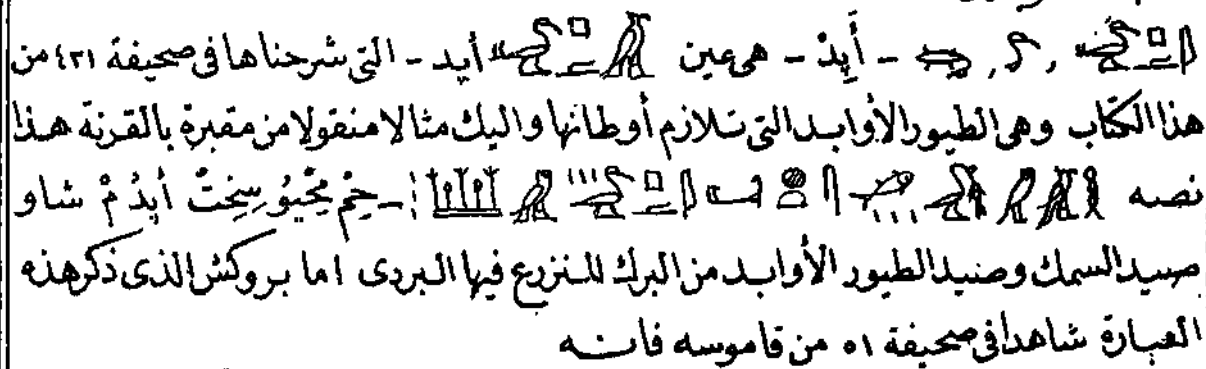 - أَپِدْ - هى عين أپد - التى شرحناها فى صحيفة ٤٣١ من
هذا الكتاب وهى الطيور الأوابد التى تلازم أوطانها واليك مثالا منقولا من مقبرة بالقرنة هذا
نصه - حِمْ مِحْيُو سِخِتْ أپِدُ مْ شاو
صيد السمك وصيد الطيور الأوابد من البرك المنزرع فيها البردى اما بروكش الذى ذكر هذه
العبارة شاهدا فى صحيفة ٥١ من قاموسه فانه